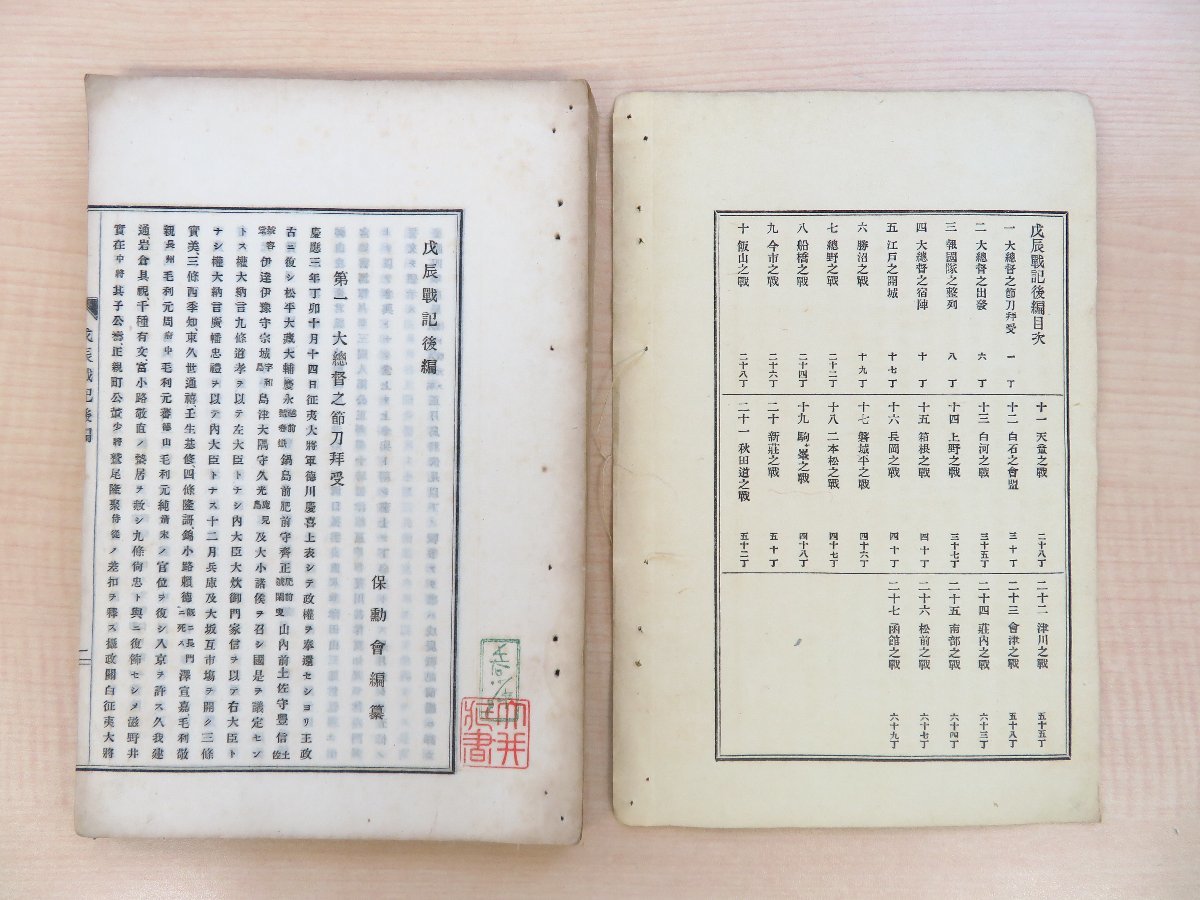 戊辰戰記後編目次
一 大總督之節刀拜受 一丁
二 大總督之出發 六丁
三 報國隊之整列 八丁
四 大總督之宿陣 十丁
五 江戸之開城 十七丁
六 勝沼之戰 十九丁
七 總野之戰 二十二丁
八 船橋之戰 二十四丁
九 今市之戰 二十六丁
十 飯山之戰 二十八丁
十一 天童之戰 二十八丁
十二 白石之會盟 三十丁
十三 白河之戰 三十五丁
十四 上野之戰 三十七丁
十五 箱根之戰 四十丁
十六 長岡之戰 四十丁
十七 磐城平之戰 四十六丁
十八 二本松之戰 四十七丁
十九 駒ヶ嶺之戰 四十八丁
二十 新莊之戰 五十丁
二十一 秋田道之戰 五十二丁
二十二 津川之戰 五十五丁
二十三 會津之戰 五十八丁
二十四 莊内之戰 六十三丁
二十五 南部之戰 六十四丁
二十六 松前之戰 六十七丁
二十七 函館之戰 六十九丁
戊辰戰記後編
保勳會編纂
第一 大總督之節刀拜受
慶應三年丁卯十月十四日征夷大將軍德川慶喜上表シテ政權ヲ奉還セシヨリ王政
古ニ復シ松平大藏大輔慶永越前號春嶽鍋島前肥前守齊正肥前號閑叟山内前土佐守豐信土佐
號容堂伊達伊豫守宗城宇和島島津大隅守久光鹿兒島及大小諸侯ヲ召シ國是ヲ議定セン
トス權大納言九條道孝ヲ以テ左大臣トナシ内大臣大炊御門家信ヲ以テ右大臣ト
ナシ權大納言廣幡忠禮ヲ以テ内大臣トナス十二月兵庫及大坂互市塲ヲ開ク三條
實美、三條西季知、東久世通禧、壬生基修、四條隆謌、錦小路賴德既ニ長門ニ死ス澤宣嘉毛利敬
親長州毛利元周府中毛利元蕃德山毛利元純清末ノ官位ヲ復シ入京ヲ許ス久我建
通、岩倉具視、千種有文、富小路敬直ノ蟄居ヲ赦シ九條尙忠ト與ニ復飾セシメ滋野井
實在中將其子公壽正親町公董少將鷲尾隆聚侍從ノ差扣ヲ釋ス攝政關白征夷大將
戊辰戰記後編
二
大井
藏書